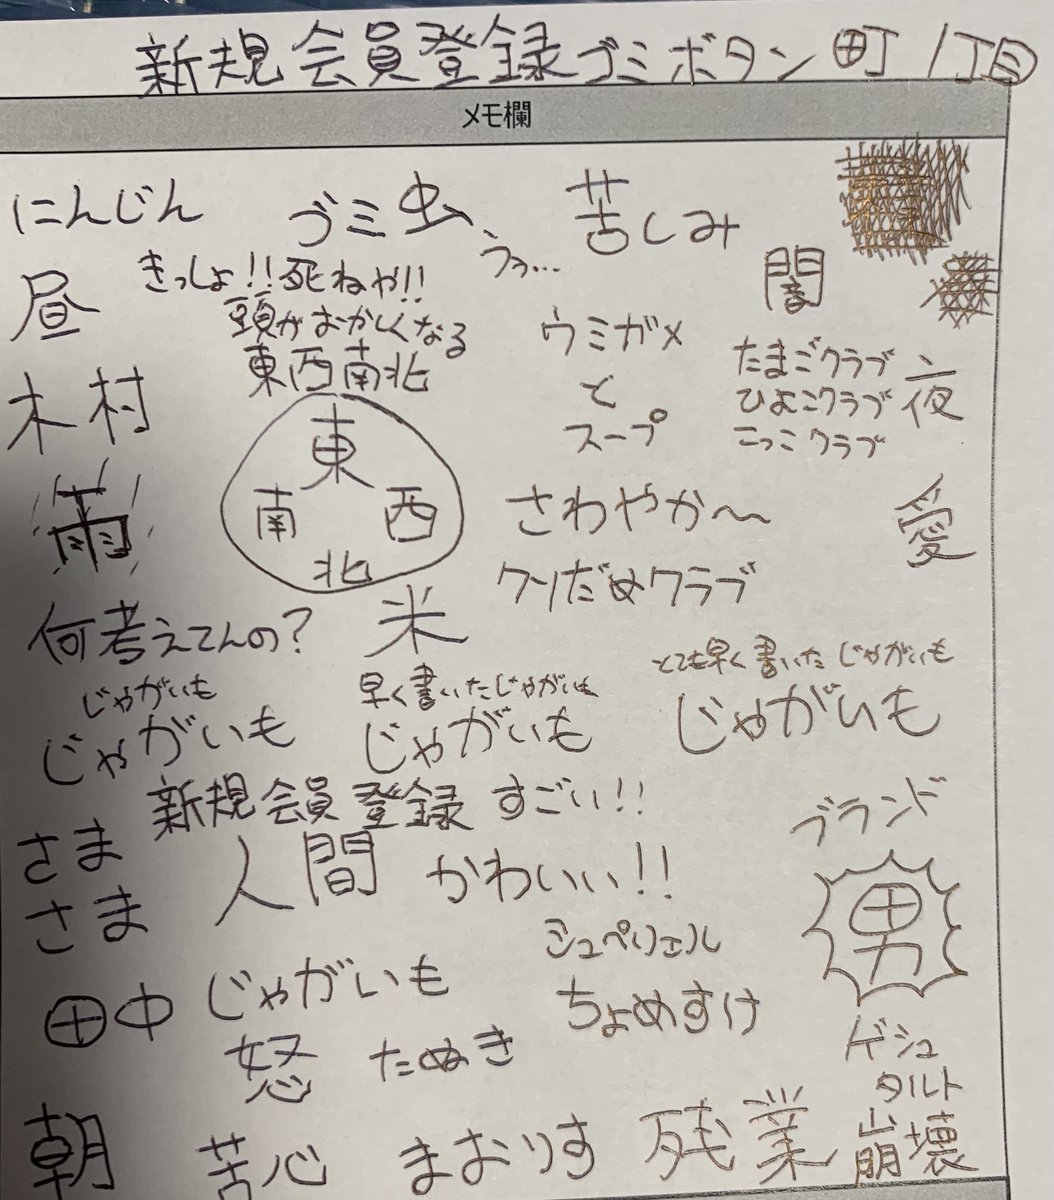 新規会員登録ゴミボタン町1丁目
メモ欄
にんじん
ゴミ虫
苦しみ
うぅ…
闇
昼
きっしょ!!死ねや!!
頭がおかしくなる
東西南北
ウミガメ
と
スープ
たまごクラブ
ひよこクラブ
こっこクラブ
夜
木村
東
南 西
北
雨
さわやか〜
愛
クリだめクラブ
何考えてんの?
米
じゃがいも
じゃがいも
早く書いたじゃがいも
じゃがいも
とても早く書いたじゃがいも
じゃがいも
新規会員登録 すごい!!
さま
さま
人間
かわいい!!
ブランド
男
田中
じゃがいも
シュペリエル
ちょめすけ
怒
たぬき
ゲシュ
タルト
崩壊
朝
苦心
まおりす
残業